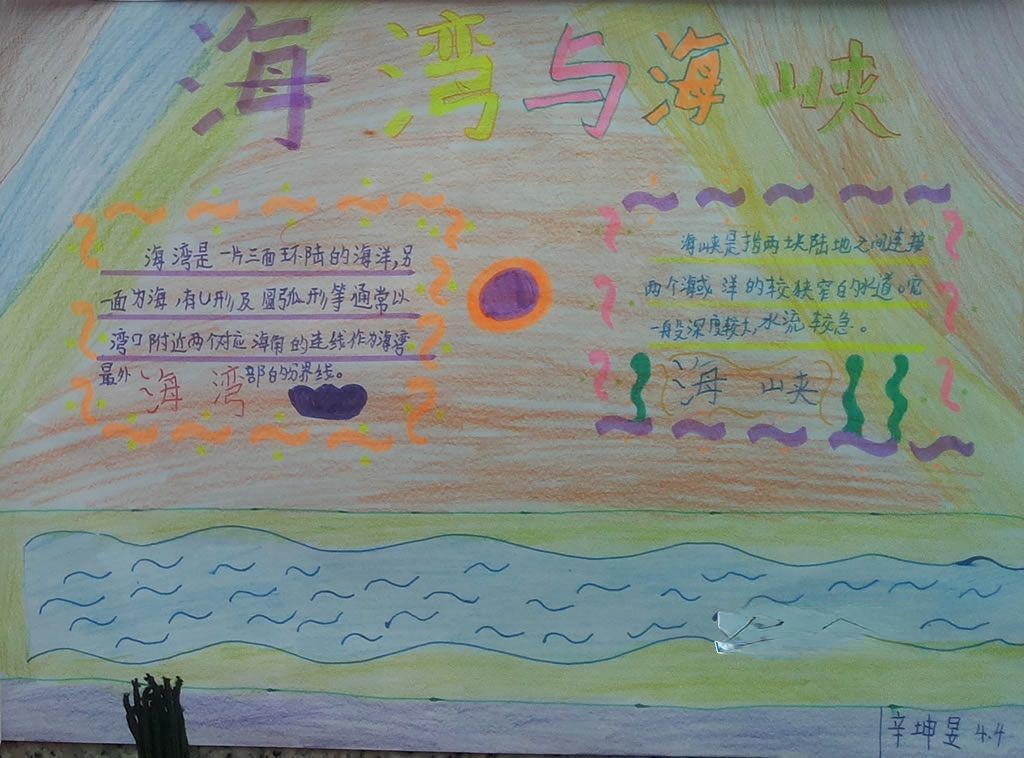 海湾与海峡
海湾是一片三面环陆的海洋,另
一面为海,有U形及圆弧形等通常以
湾口附近两个对应海角的连线作为海湾
最外部的分界线。
海湾
海峡是指两块陆地之间连接
两个海或洋的较狭窄的水道。它
一般深度较大,水流较急。
海峡
辛坤昱 4.4